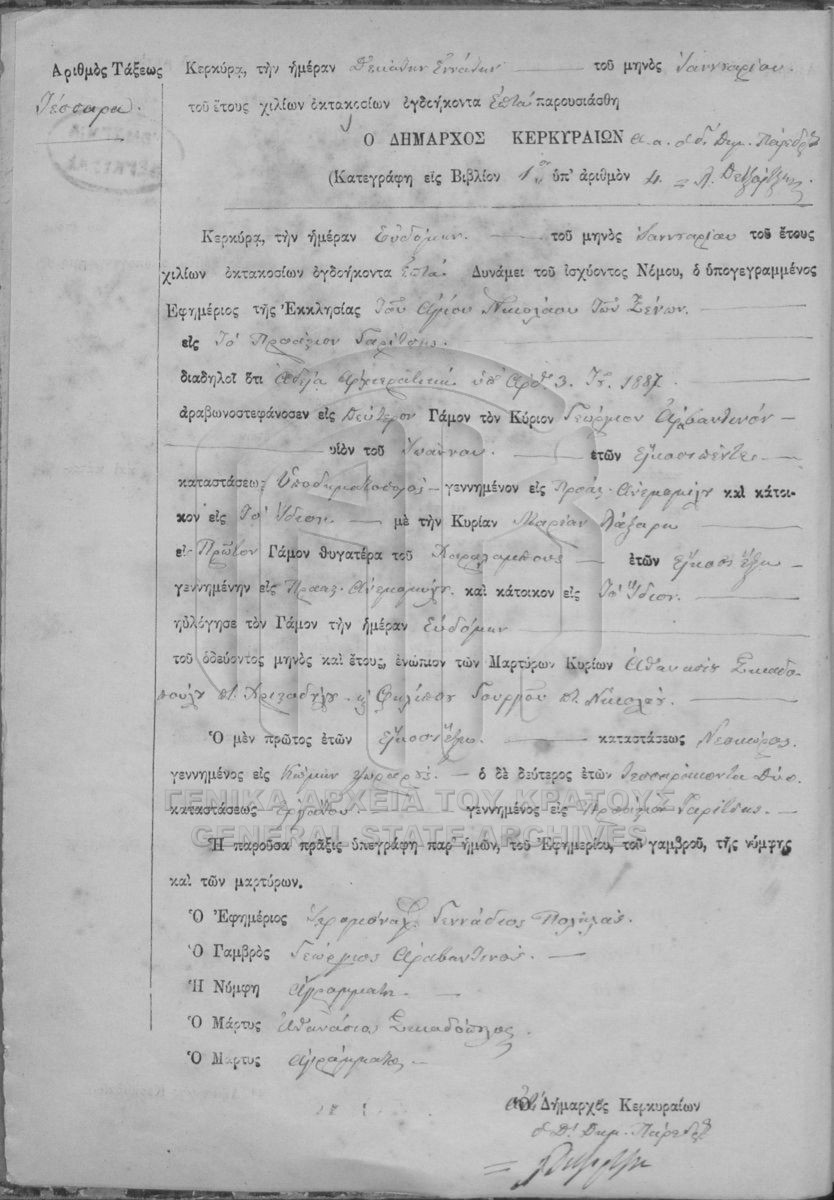 Ἀριθμὸς Τάξεως
Τέσσαρα.
Κερκύρᾳ, τὴν ἡμέραν Δεκάτην Ἐννάτην τοῦ μηνὸς Ἰαννουαρίου.
τοῦ ἔτους χιλίων ὀκτακοσίων ὀγδοήκοντα Ἑπτά παρουσιάσθη
Ο ΔΗΜΑΡΧΟΣ ΚΕΡΚΥΡΑΙΩΝ α.α. ὁ δ. Δημ. Πάρεδρος
(Κατεγράφη εἰς Βιβλίον 1ον ὑπ' ἀριθμὸν 4.
Κερκύρᾳ, τὴν ἡμέραν Εὐδόμην. τοῦ μηνὸς Ἰαννουαρίου τοῦ ἔτους
χιλίων ὀκτακοσίων ὀγδοήκοντα Ἑπτά. Δυνάμει τοῦ ἰσχύοντος Νόμου, ὁ ὑπογεγραμμένος
Ἐφημέριος τῆς Ἐκκλησίας Τοῦ Ἁγίου Νικολάου τῶν Ξένων.
εἰς Τὸ Προάστιον Γαρίτσης.
διαδηλοῖ ὅτι Ἀδείᾳ Ἀρχιερατικῇ ὑπ' Ἀρθ. 3. 1887
ἀραβωνοστεφάνοσεν εἰς Δεύτερον Γάμον τὸν Κύριον Γεώργιον Ἀραβαντινόν
υἱὸν τοῦ Ἰωάννου. ἐτῶν εἴκοσι πέντε
καταστάσεως Ὑποδηματοποιός γεννημένον εἰς Προάς. Ἀνεμομύλου καὶ κάτοι-
κον εἰς Τὸ Ἴδιον. μὲ τὴν Κυρίαν Μαρίαν Λάζαρη
εἰς Πρῶτον Γάμον θυγατέρα τοῦ Χαραλάμπους ἐτῶν εἴκοσι ἕξι
γεννημένην εἰς Προάς. Ἀνεμομύλου. καὶ κάτοικον εἰς Τὸ Ἴδιον.
ηὐλόγησε τὸν Γάμον τὴν ἡμέραν Εὐδόμην
τοῦ ὁδεύοντος μηνὸς καὶ ἔτους, ἐνώπιον τῶν Μαρτύρων Κυρίων Ἀθανασίου Σκιαδο-
πούλου κ. Φιλίππου π. Νικολάου.
Ὁ μὲν πρῶτος ἐτῶν εἴκοσι ἕξι. καταστάσεως
γεννημένος εἰς Κώμην ὁ δὲ δεύτερος ἐτῶν τεσσαράκοντα Δύο.
καταστάσεως Ἐργάτου. γεννημένος εἰς Προάστιον Γαρίτσης.
ΓΕΝΙΚΑ ΑΡΧΕΙΑ ΤΟΥ ΚΡΑΤΟΥΣ
GENERAL STATE ARCHIVES
Ἡ παροῦσα πρᾶξις ὑπεγράφη παρ' ἡμῶν, τοῦ Ἐφημερίου, τοῦ γαμβροῦ, τῆς νύμφης
καὶ τῶν μαρτύρων.
Ὁ Ἐφημέριος Ἱερομόναχ. Γεννάδιος Πολυλᾶς.
Ὁ Γαμβρὸς Γεώργιος Ἀραβαντινός.
Ἡ Νύμφη ἀγράμματη.
Ὁ Μάρτυς Ἀθανάσιος Σκιαδόπουλος
Ὁ Μάρτυς ἀγράμματος
Ὁ Δήμαρχος Κερκυραίων
ὁ Δ. Δημ. Πάρεδρος